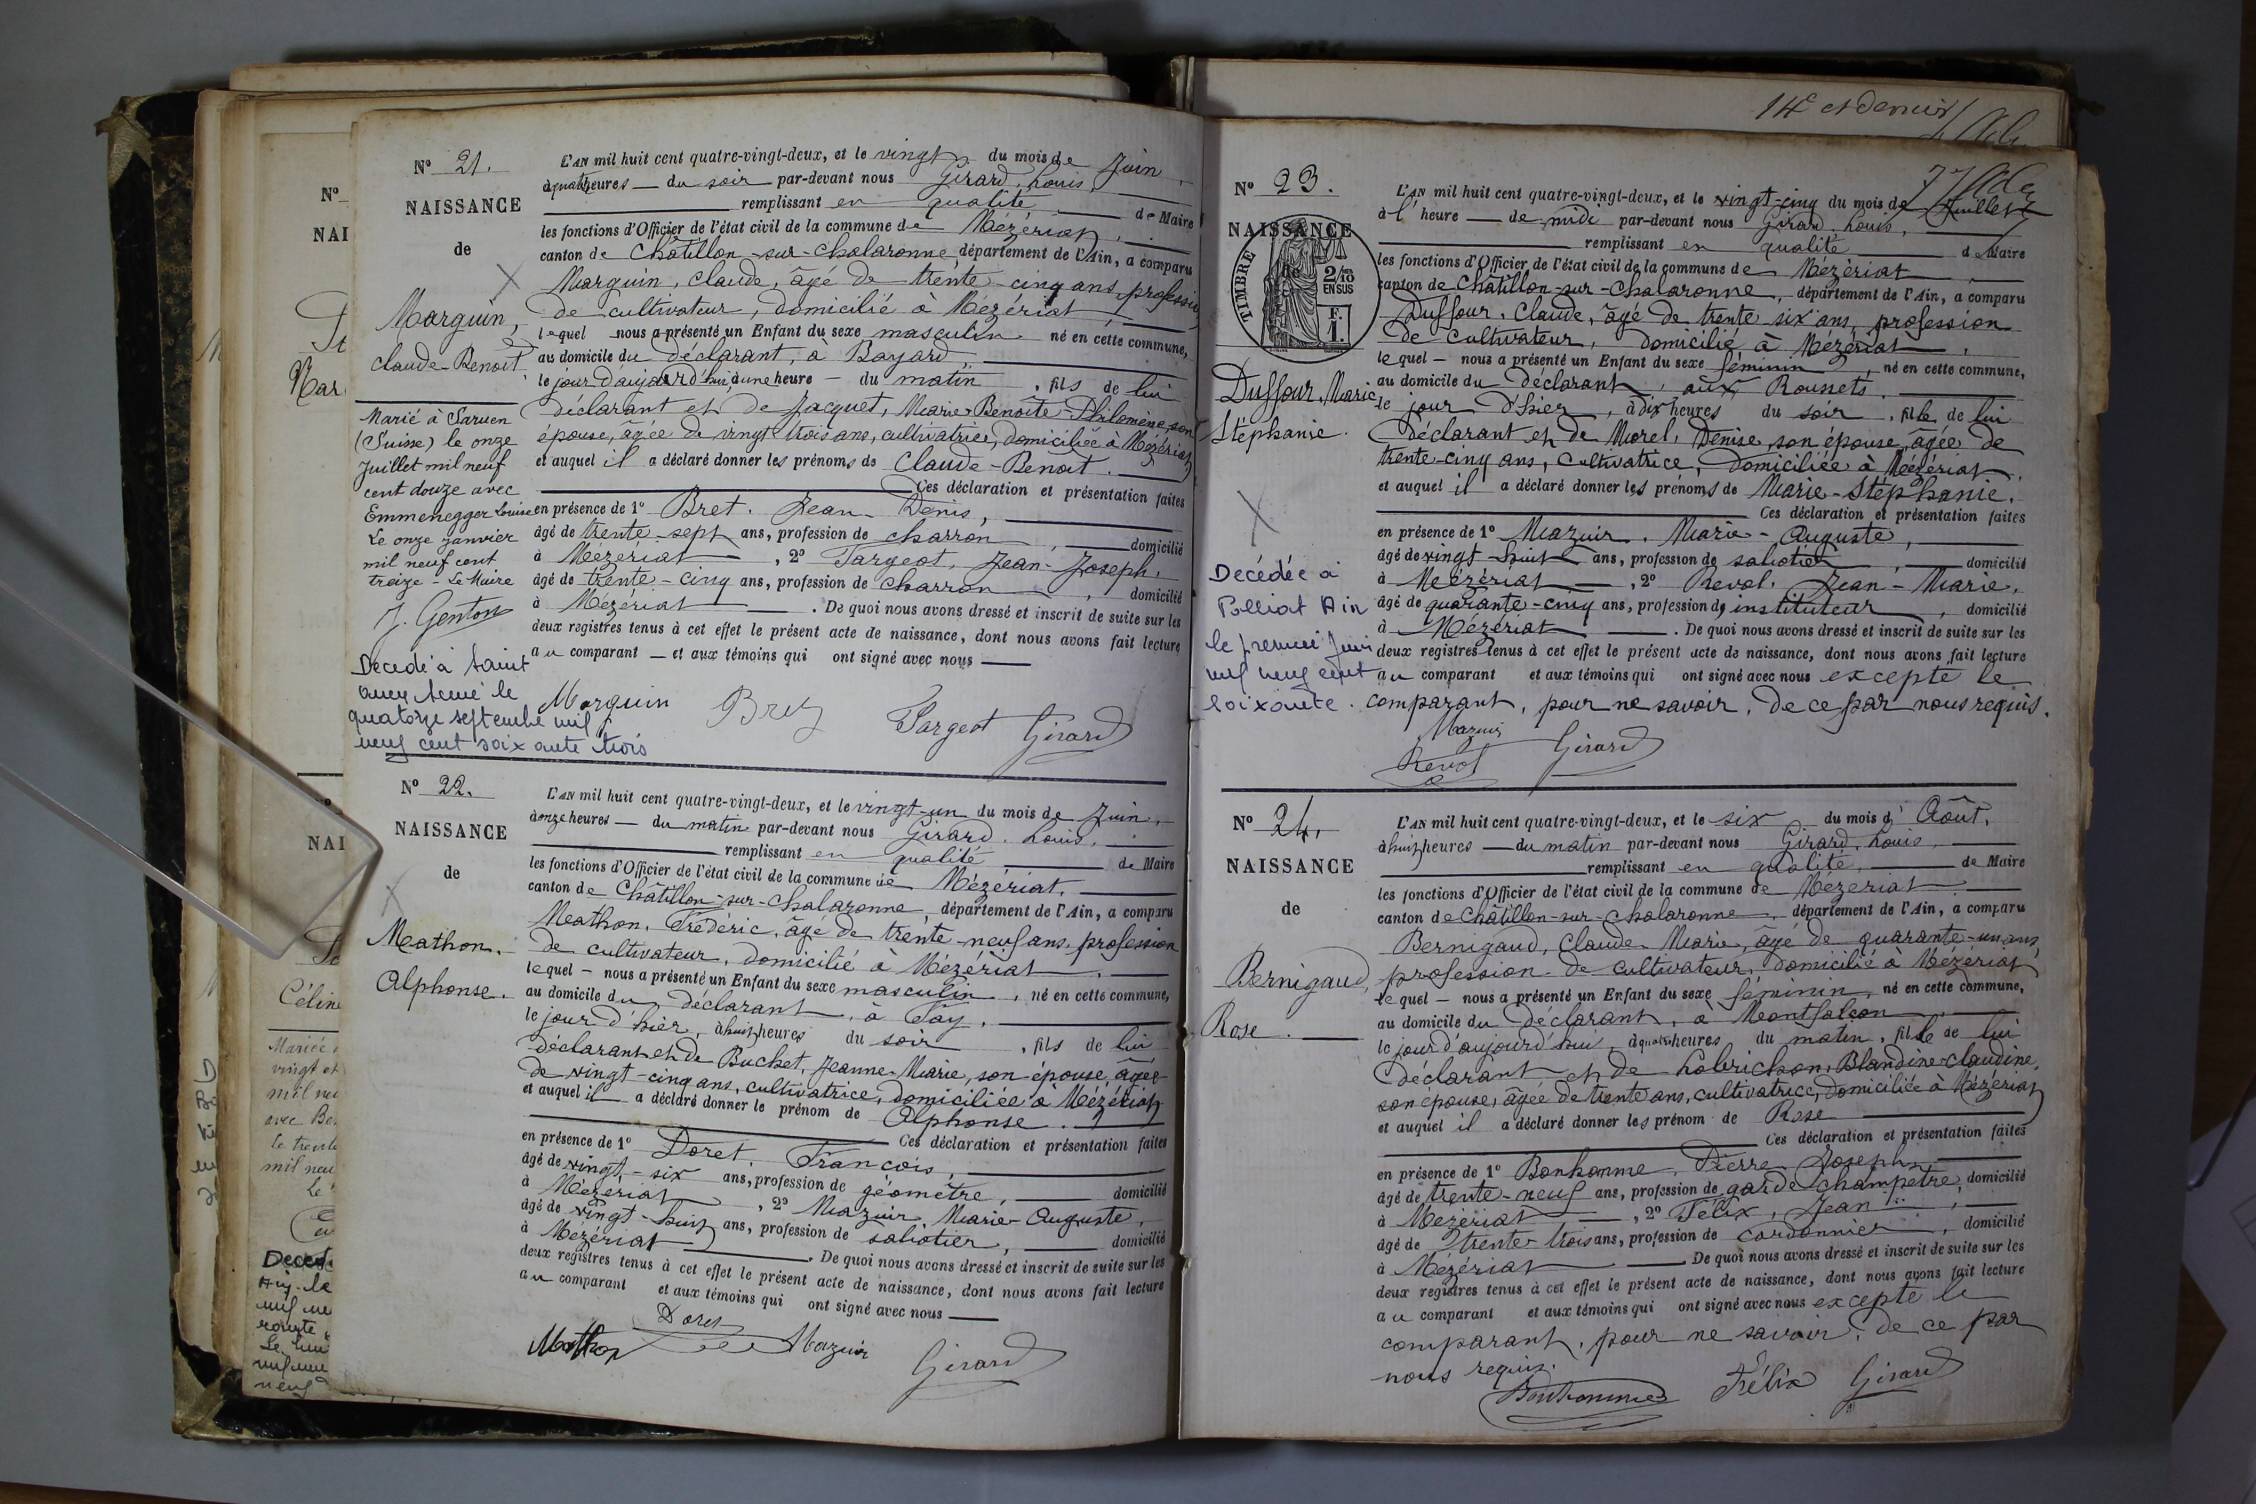 Nº 21.
NAISSANCE
de
Marguin,
Claude-Benoit
Marié à Sarnen
(Suisse) le onze
Juillet mil neuf
cent douze avec
Emmenegger Louise
Le onze janvier
mil neuf cent
treize - Le Maire
J. Genton
Décédé à Saint
le
quatorze septembre mil
neuf cent soixante trois
L'AN mil huit cent quatre-vingt-deux, et le vingt du mois de Juin,
à quatre heures du soir par-devant nous Girard, Louis
remplissant en qualité de Maire
les fonctions d'Officier de l'état civil de la commune de Mézériat,
canton de Châtillon-sur-Chalaronne, département de l'Ain, a comparu
Marguin, Claude, âgé de trente-cinq ans, profession
de cultivateur, domicilié à Mézériat
lequel nous a présenté un Enfant du sexe masculin né en cette commune,
au domicile du déclarant, à Bayard
le jour d'aujourd'hui, à une heure du matin, fils de lui
déclarant et de Jacquet, Marie-Benoîte-Philomène, son
épouse, âgée de vingt trois ans, cultivatrice, domiciliée à Mézériat
et auquel il a déclaré donner les prénoms de Claude-Benoit.
Ces déclaration et présentation faites
en présence de 1º Bret, Jean-Denis,
âgé de trente-sept ans, profession de charron, domicilié
à Mézériat, 2º Targeot, Jean-Joseph,
âgé de trente-cinq ans, profession de charron, domicilié
à Mézériat. De quoi nous avons dressé et inscrit de suite sur les
deux registres tenus à cet effet le présent acte de naissance, dont nous avons fait lecture
au comparant et aux témoins qui ont signé avec nous
Marguin Bret Targeot Girard
Nº 22.
NAISSANCE
de
Mathon.
Alphonse.
L'AN mil huit cent quatre-vingt-deux, et le vingt-un du mois de Juin,
à onze heures du matin par-devant nous Girard, Louis,
remplissant en qualité de Maire
les fonctions d'Officier de l'état civil de la commune de Mézériat,
canton de Châtillon-sur-Chalaronne, département de l'Ain, a comparu
Mathon, Frédéric, âgé de trente-neuf ans, profession
de cultivateur, domicilié à Mézériat,
lequel nous a présenté un Enfant du sexe masculin, né en cette commune,
au domicile du déclarant, à Fay,
le jour d'hier, à huit heures du soir, fils de lui
déclarant et de Buchet, Jeanne-Marie, son épouse, âgée
de vingt-cinq ans, cultivatrice, domiciliée à Mézériat
et auquel il a déclaré donner le prénom de Alphonse.
Ces déclaration et présentation faites
en présence de 1º Doret, François,
âgé de vingt-six ans, profession de géomètre, domicilié
à Mézériat, 2º Mazuir, Marie-Auguste,
âgé de vingt-huit ans, profession de sabotier, domicilié
à Mézériat. De quoi nous avons dressé et inscrit de suite sur les
deux registres tenus à cet effet le présent acte de naissance, dont nous avons fait lecture
au comparant et aux témoins qui ont signé avec nous
Doret
Mathon Mazuir Girard
14e et dernier
Nº 23.
NAISSANCE
de
TIMBRE
2/10 EN SUS
F. 1.
Duffour, Marie
Stéphanie.
Décédée à
Polliat Ain
le premier Juin
mil neuf cent
soixante.
L'AN mil huit cent quatre-vingt-deux, et le vingt-cinq du mois de Juillet
à l'heure de midi par-devant nous Girard, Louis,
remplissant en qualité de Maire
les fonctions d'Officier de l'état civil de la commune de Mézériat
canton de Châtillon-sur-Chalaronne, département de l'Ain, a comparu
Duffour, Claude, âgé de trente six ans, profession
de cultivateur, domicilié à Mézériat,
lequel nous a présenté un Enfant du sexe féminin, né en cette commune,
au domicile du déclarant, aux Roussets.
le jour d'hier, à dix heures du soir, fille de lui
déclarant et de Morel, Denise, son épouse, âgée de
trente-cinq ans, cultivatrice, domiciliée à Mézériat.
et auquel il a déclaré donner les prénoms de Marie-Stéphanie.
Ces déclaration et présentation faites
en présence de 1º Mazuir, Marie-Auguste,
âgé de vingt-huit ans, profession de sabotier, domicilié
à Mézériat, 2º Revol, Jean-Marie,
âgé de quarante-cinq ans, profession de instituteur, domicilié
à Mézériat. De quoi nous avons dressé et inscrit de suite sur les
deux registres tenus à cet effet le présent acte de naissance, dont nous avons fait lecture
au comparant et aux témoins qui ont signé avec nous excepté le
comparant, pour ne savoir, de ce par nous requis.
Mazuir
Revol Girard
Nº 24.
NAISSANCE
de
Bernigaud,
Rose.
L'AN mil huit cent quatre-vingt-deux, et le six du mois d'Août,
à huit heures du matin par-devant nous Girard, Louis,
remplissant en qualité de Maire
les fonctions d'Officier de l'état civil de la commune de Mézériat
canton de Châtillon-sur-Chalaronne, département de l'Ain, a comparu
Bernigaud, Claude-Marie, âgé de quarante-un ans,
profession de cultivateur, domicilié à Mézériat
lequel nous a présenté un Enfant du sexe féminin, né en cette commune,
au domicile du déclarant, à Montfalcon
le jour d'aujourd'hui, à quatre heures du matin, fille de lui
déclarant et de Labrichon, Blandine-Claudine,
son épouse, âgée de trente ans, cultivatrice, domiciliée à Mézériat
et auquel il a déclaré donner les prénom de Rose
Ces déclaration et présentation faites
en présence de 1º Bonhomme, Pierre Joseph,
âgé de trente-neuf ans, profession de garde champêtre, domicilié
à Mézériat, 2º Félix, Jean,
âgé de trente-trois ans, profession de cordonnier, domicilié
à Mézériat. De quoi nous avons dressé et inscrit de suite sur les
deux registres tenus à cet effet le présent acte de naissance, dont nous avons fait lecture
au comparant et aux témoins qui ont signé avec nous excepté le
comparant, pour ne savoir, de ce par
nous requis.
Bonhomme Félix Girard